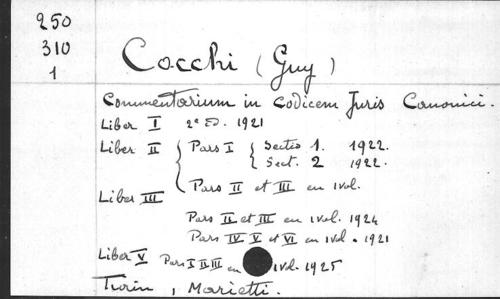 250
310
1
Cocchi (Guy)
Commentarium in Codicem Juris Canonici.
Liber I 2e ED. 1921
Liber II { Pars I { Sectio 1. 1922.
Sect. 2 1922.
Pars II et III en 1 vol.
Liber III
Pars II et III en 1 vol. 1924
Pars IV V et VI en 1 vol. 1921
Liber V Pars I II III en 1 vol. 1925
Turin, Marietti.